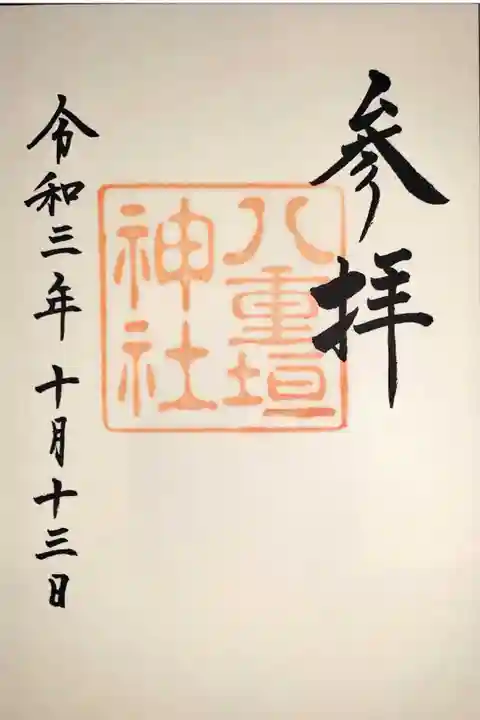 参拝
八重垣
神社
令和三年十月十三日